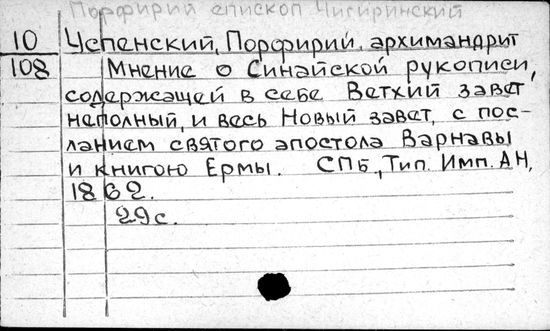 Порфирий епископ Чигиринский
10 Успенский, Порфирий, архимандрит
108 Мнение о Синайской рукописи,
содержащей в себе Ветхий завет
неполный, и весь Новый завет, с пос-
ланием святого апостола Варнавы
и книгою Ермы. СПб, Тип. Имп. АН,
1862.
29 с.